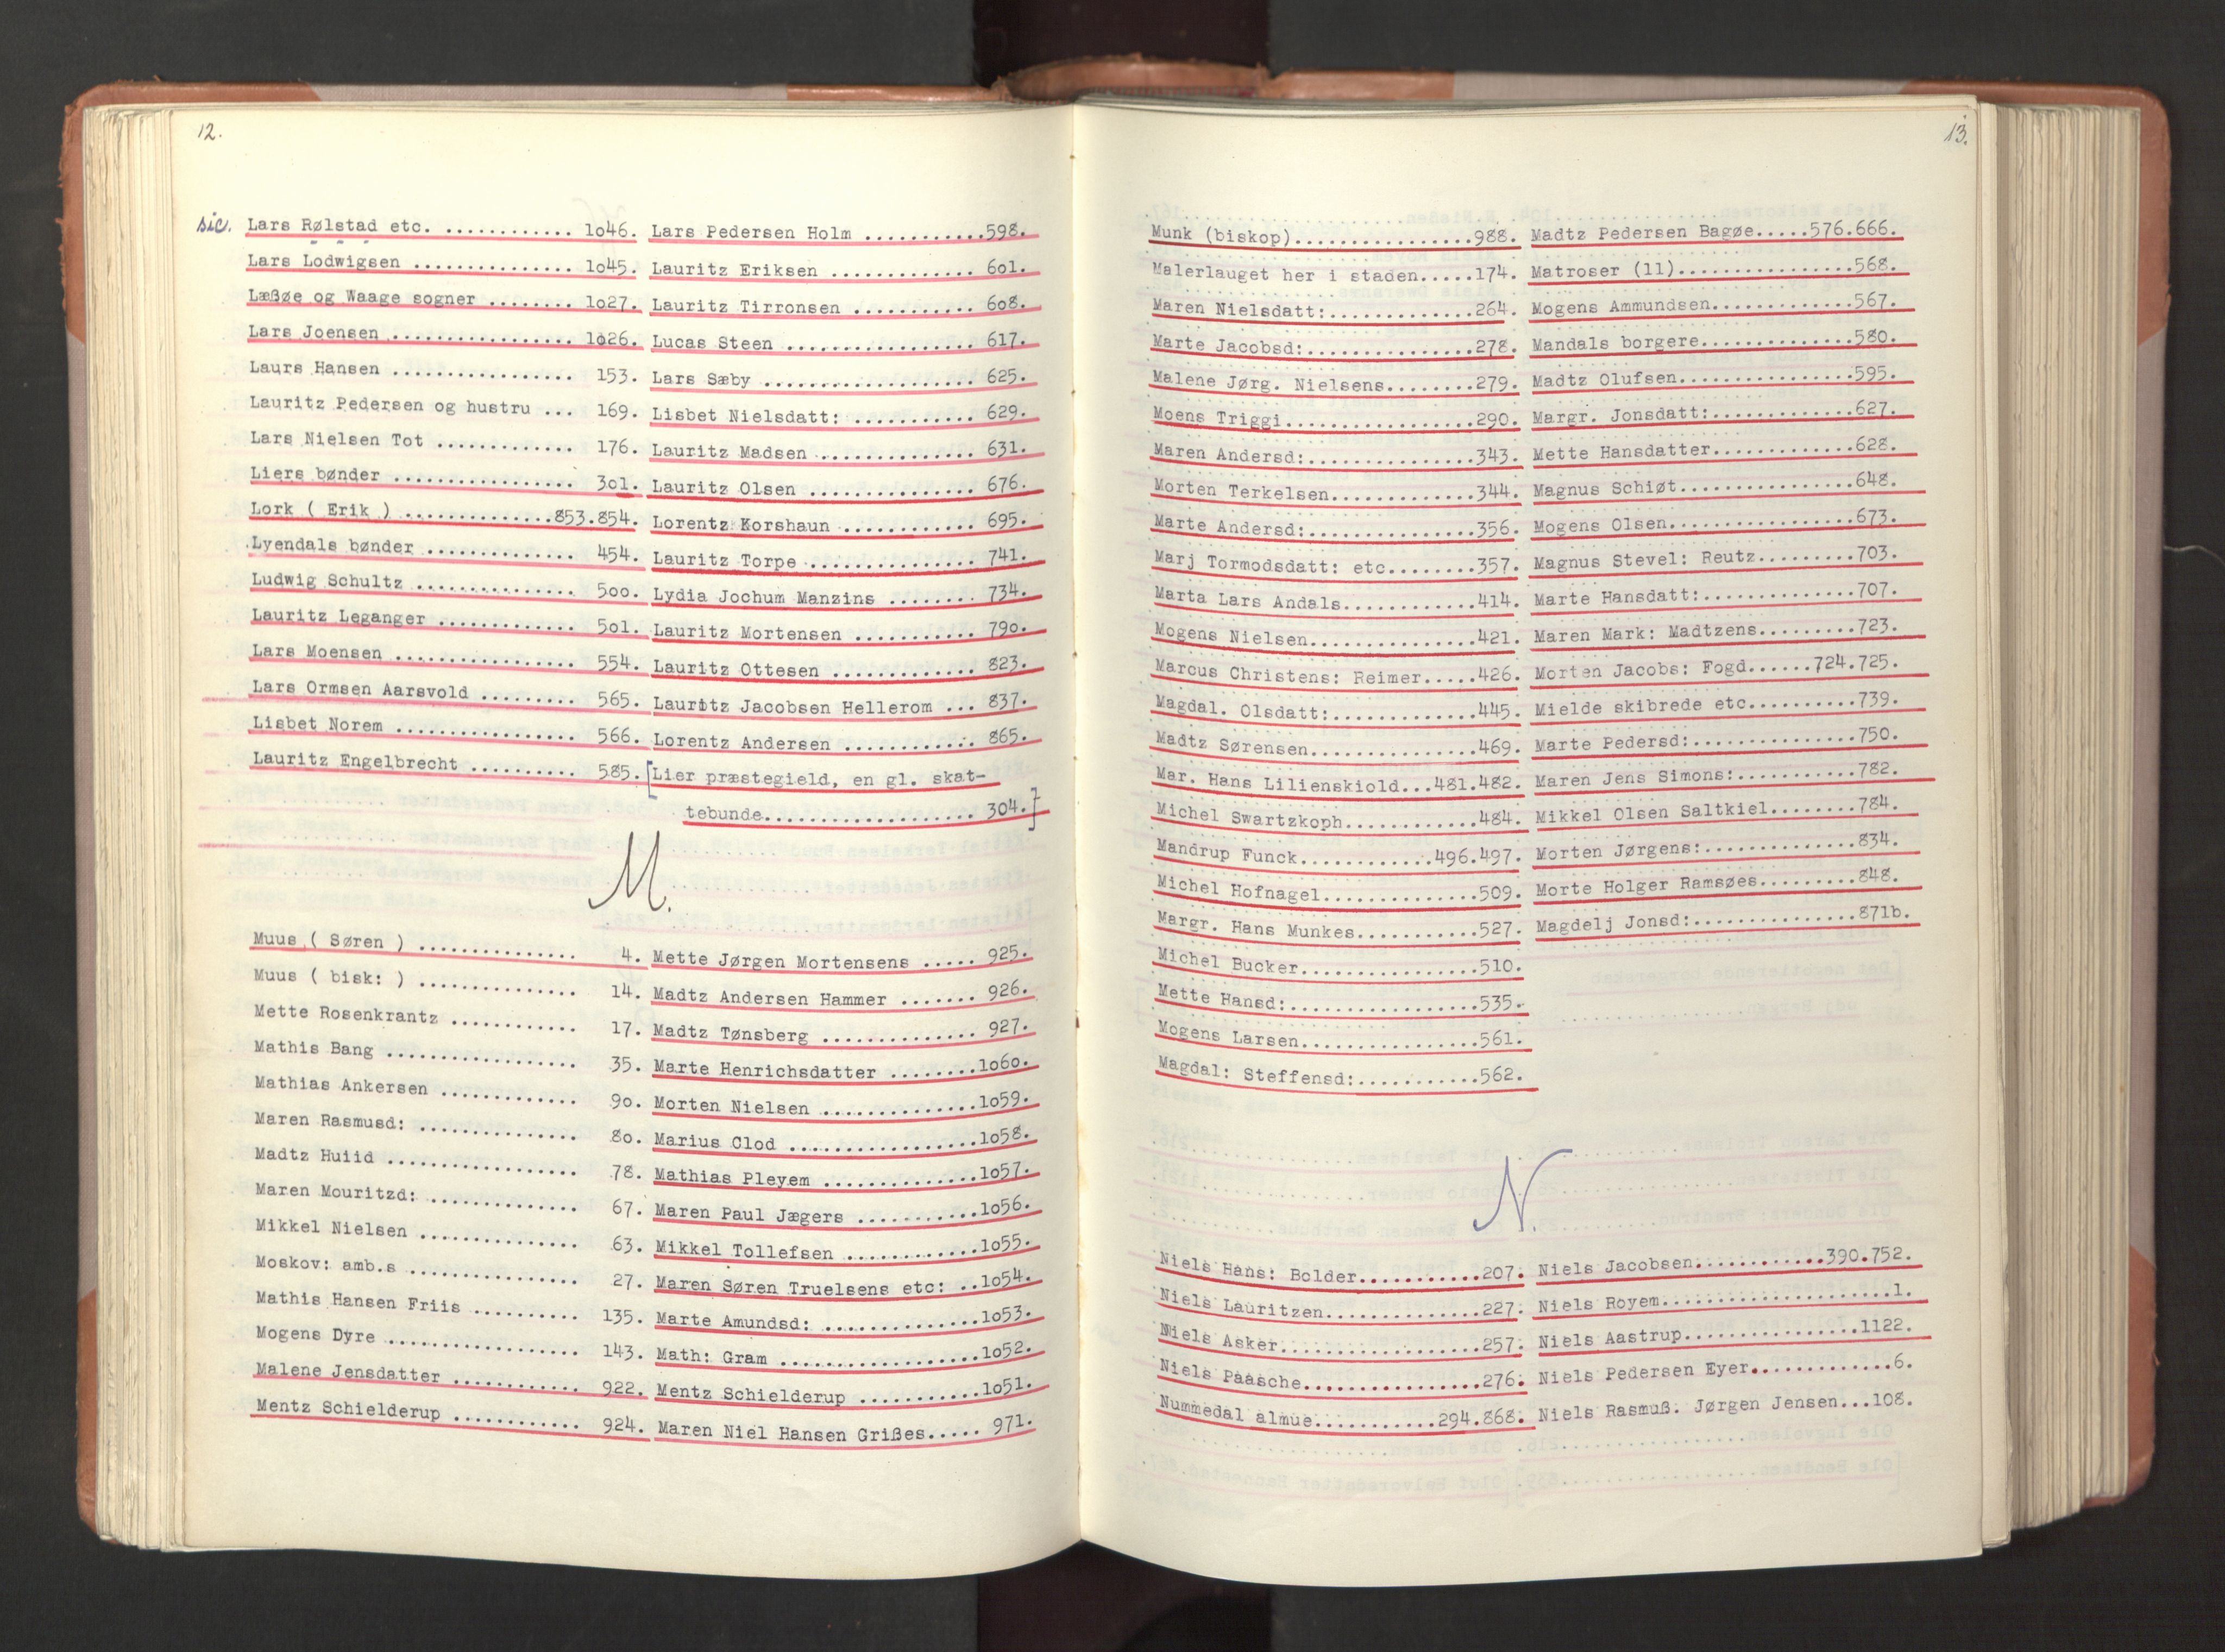 12.
sic. Lars Rølstad etc. ............ 1o46.
Lars Lodwigsen ............... 1o45.
Læßøe og Waage sogner ........ 1o27.
Lars Joensen ................. 1o26.
Laurs Hansen ................. 153.
Lauritz Pedersen og hustru ... 169.
Lars Nielsen Tot ............. 176.
Liers bønder ................. 3o1.
Lork ( Erik ) ..............853.854.
Lyendals bønder .............. 454.
Ludwig Schultz ............... 5oo.
Lauritz Leganger ............. 5o1.
Lars Moensen ................. 554.
Lars Ormsen Aarsvold ......... 565.
Lisbet Norem ................. 566.
Lauritz Engelbrecht .......... 585.
Lars Pedersen Holm ...........598.
Lauritz Eriksen ............. 6o1.
Lauritz Tirronsen ........... 6o8.
Lucas Steen ................. 617.
Lars Sæby ................... 625.
Lisbet Nielsdatt: ........... 629.
Lauritz Madsen .............. 631.
Lauritz Olsen ............... 676.
Lorentz Korshaun ............ 695.
Lauritz Torpe ............... 741.
Lydia Jochum Manzins ........ 734.
Lauritz Mortensen ........... 79o.
Lauritz Ottesen ............. 823.
Lauritz Jacobsen Hellerom ... 837.
Lorentz Andersen ............ 865.
[Lier præstegield, en gl. skat-
tebunde................... 3o4.]
M.
Muus ( Søren ) .............. 4.
Muus ( bisk: ) .............. 14.
Mette Rosenkrantz ........... 17.
Mathis Bang ................. 35.
Mathias Ankersen ............ 9o.
Maren Rasmusd: .............. 8o.
Madtz Huiid ................. 78.
Maren Mouritzd: ............. 67.
Mikkel Nielsen .............. 63.
Moskov: amb.s ............... 27.
Mathis Hansen Friis ......... 135.
Mogens Dyre ................. 143.
Malene Jensdatter ........... 922.
Mentz Schielderup ........... 924.
Mette Jørgen Mortensens ..... 925.
Madtz Andersen Hammer ....... 926.
Madtz Tønsberg .............. 927.
Marte Henrichsdatter ........1o6o.
Morten Nielsen ..............1o59.
Marius Clod .................1o58.
Mathias Pleyem ..............1o57.
Maren Paul Jægers ...........1o56.
Mikkel Tollefsen ............1o55.
Maren Søren Truelsens etc: ..1o54.
Marte Amundsd: ..............1o53.
Math: Gram ..................1o52.
Mentz Schielderup ...........1o51.
Maren Niel Hansen Grißes..... 971.
13.
Munk (biskop).................988.
Malerlauget her i staden.....174.
Maren Nielsdatt:.............264.
Marte Jacobsd:...............278.
Malene Jørg. Nielsens........279.
Moens Triggi.................290.
Maren Andersd:...............343.
Morten Terkelsen.............344.
Marte Andersd:...............356.
Marj Tormodsdatt: etc........357.
Marta Lars Andals............414.
Mogens Nielsen...............421.
Marcus Christens: Reimer.....426.
Magdal. Olsdatt:.............445.
Madtz Sørensen...............469.
Mar. Hans Lilienskiold...481.482.
Michel Swartzkoph............484.
Mandrup Funck............496.497.
Michel Hofnagel..............509.
Margr. Hans Munkes...........527.
Michel Bucker................510.
Mette Hansd:.................535.
Mogens Larsen................561.
Magdal: Steffensd:...........562.
Madtz Pedersen Bagøe.....576.666.
Matroser (11)................568.
Mogens Ammundsen.............567.
Mandals borgere..............580.
Madtz Olufsen................595.
Margr. Jonsdatt:.............627.
Mette Hansdatter.............628.
Magnus Schiøt................648.
Mogens Olsen.................673.
Magnus Stevel: Reutz.........703.
Marte Hansdatt:..............707.
Maren Mark: Madtzens.........723.
Morten Jacobs: Fogd......724.725.
Mielde skibrede etc..........739.
Marte Pedersd:...............750.
Maren Jens Simons:...........782.
Mikkel Olsen Saltkiel........784.
Morten Jørgens:..............834.
Morte Holger Ramsøes.........848.
Magdelj Jonsd:...............871b.
N.
Niels Hans: Bolder...........207.
Niels Lauritzen..............227.
Niels Asker..................257.
Niels Paasche................276.
Nummedal almue...........294.868.
Niels Jacobsen............390.752.
Niels Royem.....................1.
Niels Aastrup................1122.
Niels Pedersen Eyer.............6.
Niels Rasmuß. Jørgen Jensen...108.